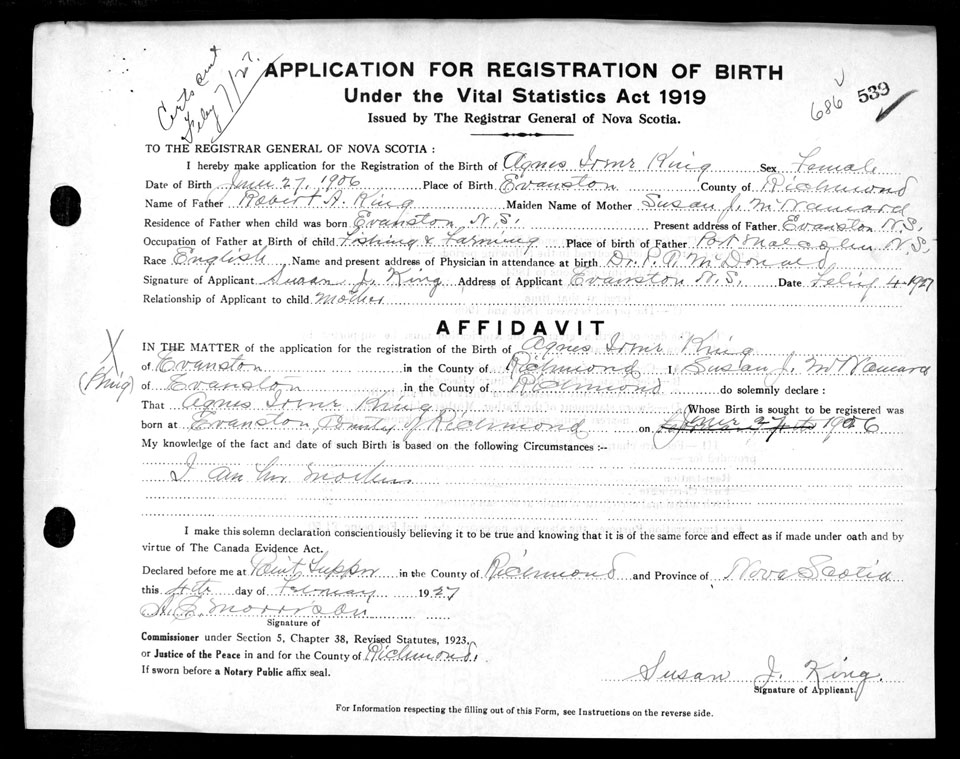 Certs ent
Feby 7/27
APPLICATION FOR REGISTRATION OF BIRTH
686
539
Under the Vital Statistics Act 1919
Issued by The Registrar General of Nova Scotia.
TO THE REGISTRAR GENERAL OF NOVA SCOTIA :
I hereby make application for the Registration of the Birth of Agnes Irmr King Sex Female
Date of Birth June 27, 1906 Place of Birth Evanston County of Richmond
Name of Father Robert A. King Maiden Name of Mother Susan J. McNamara
Residence of Father when child was born Evanston N.S. Present address of Father Evanston N.S.
Occupation of Father at Birth of child Fishing & Farming Place of birth of Father Port Malcolm N.S.
Race English Name and present address of Physician in attendance at birth Dr. P. A. McDonald
Signature of Applicant Susan J. King Address of Applicant Evanston N.S. Date Feby 4-1927
Relationship of Applicant to child Mother
AFFIDAVIT
IN THE MATTER of the application for the registration of the Birth of Agnes Irmr King
X
of Evanston in the County of Richmond I, Susan J. McNamara
(King)
of Evanston in the County of Richmond do solemnly declare :
That Agnes Irmr King Whose Birth is sought to be registered was
born at Evanston County of Richmond on June 27 1906
My knowledge of the fact and date of such Birth is based on the following Circumstances :-
I am her mother
I make this solemn declaration conscientiously believing it to be true and knowing that it is of the same force and effect as if made under oath and by
virtue of The Canada Evidence Act.
Declared before me at Point Tupper in the County of Richmond and Province of Nova Scotia
this 4th day of February 1927
Morrison
Signature of
Commissioner under Section 5, Chapter 38, Revised Statutes, 1923,
or Justice of the Peace in and for the County of Richmond.
If sworn before a Notary Public affix seal.
Susan J. King.
Signature of Applicant.
For Information respecting the filling out of this Form, see Instructions on the reverse side.